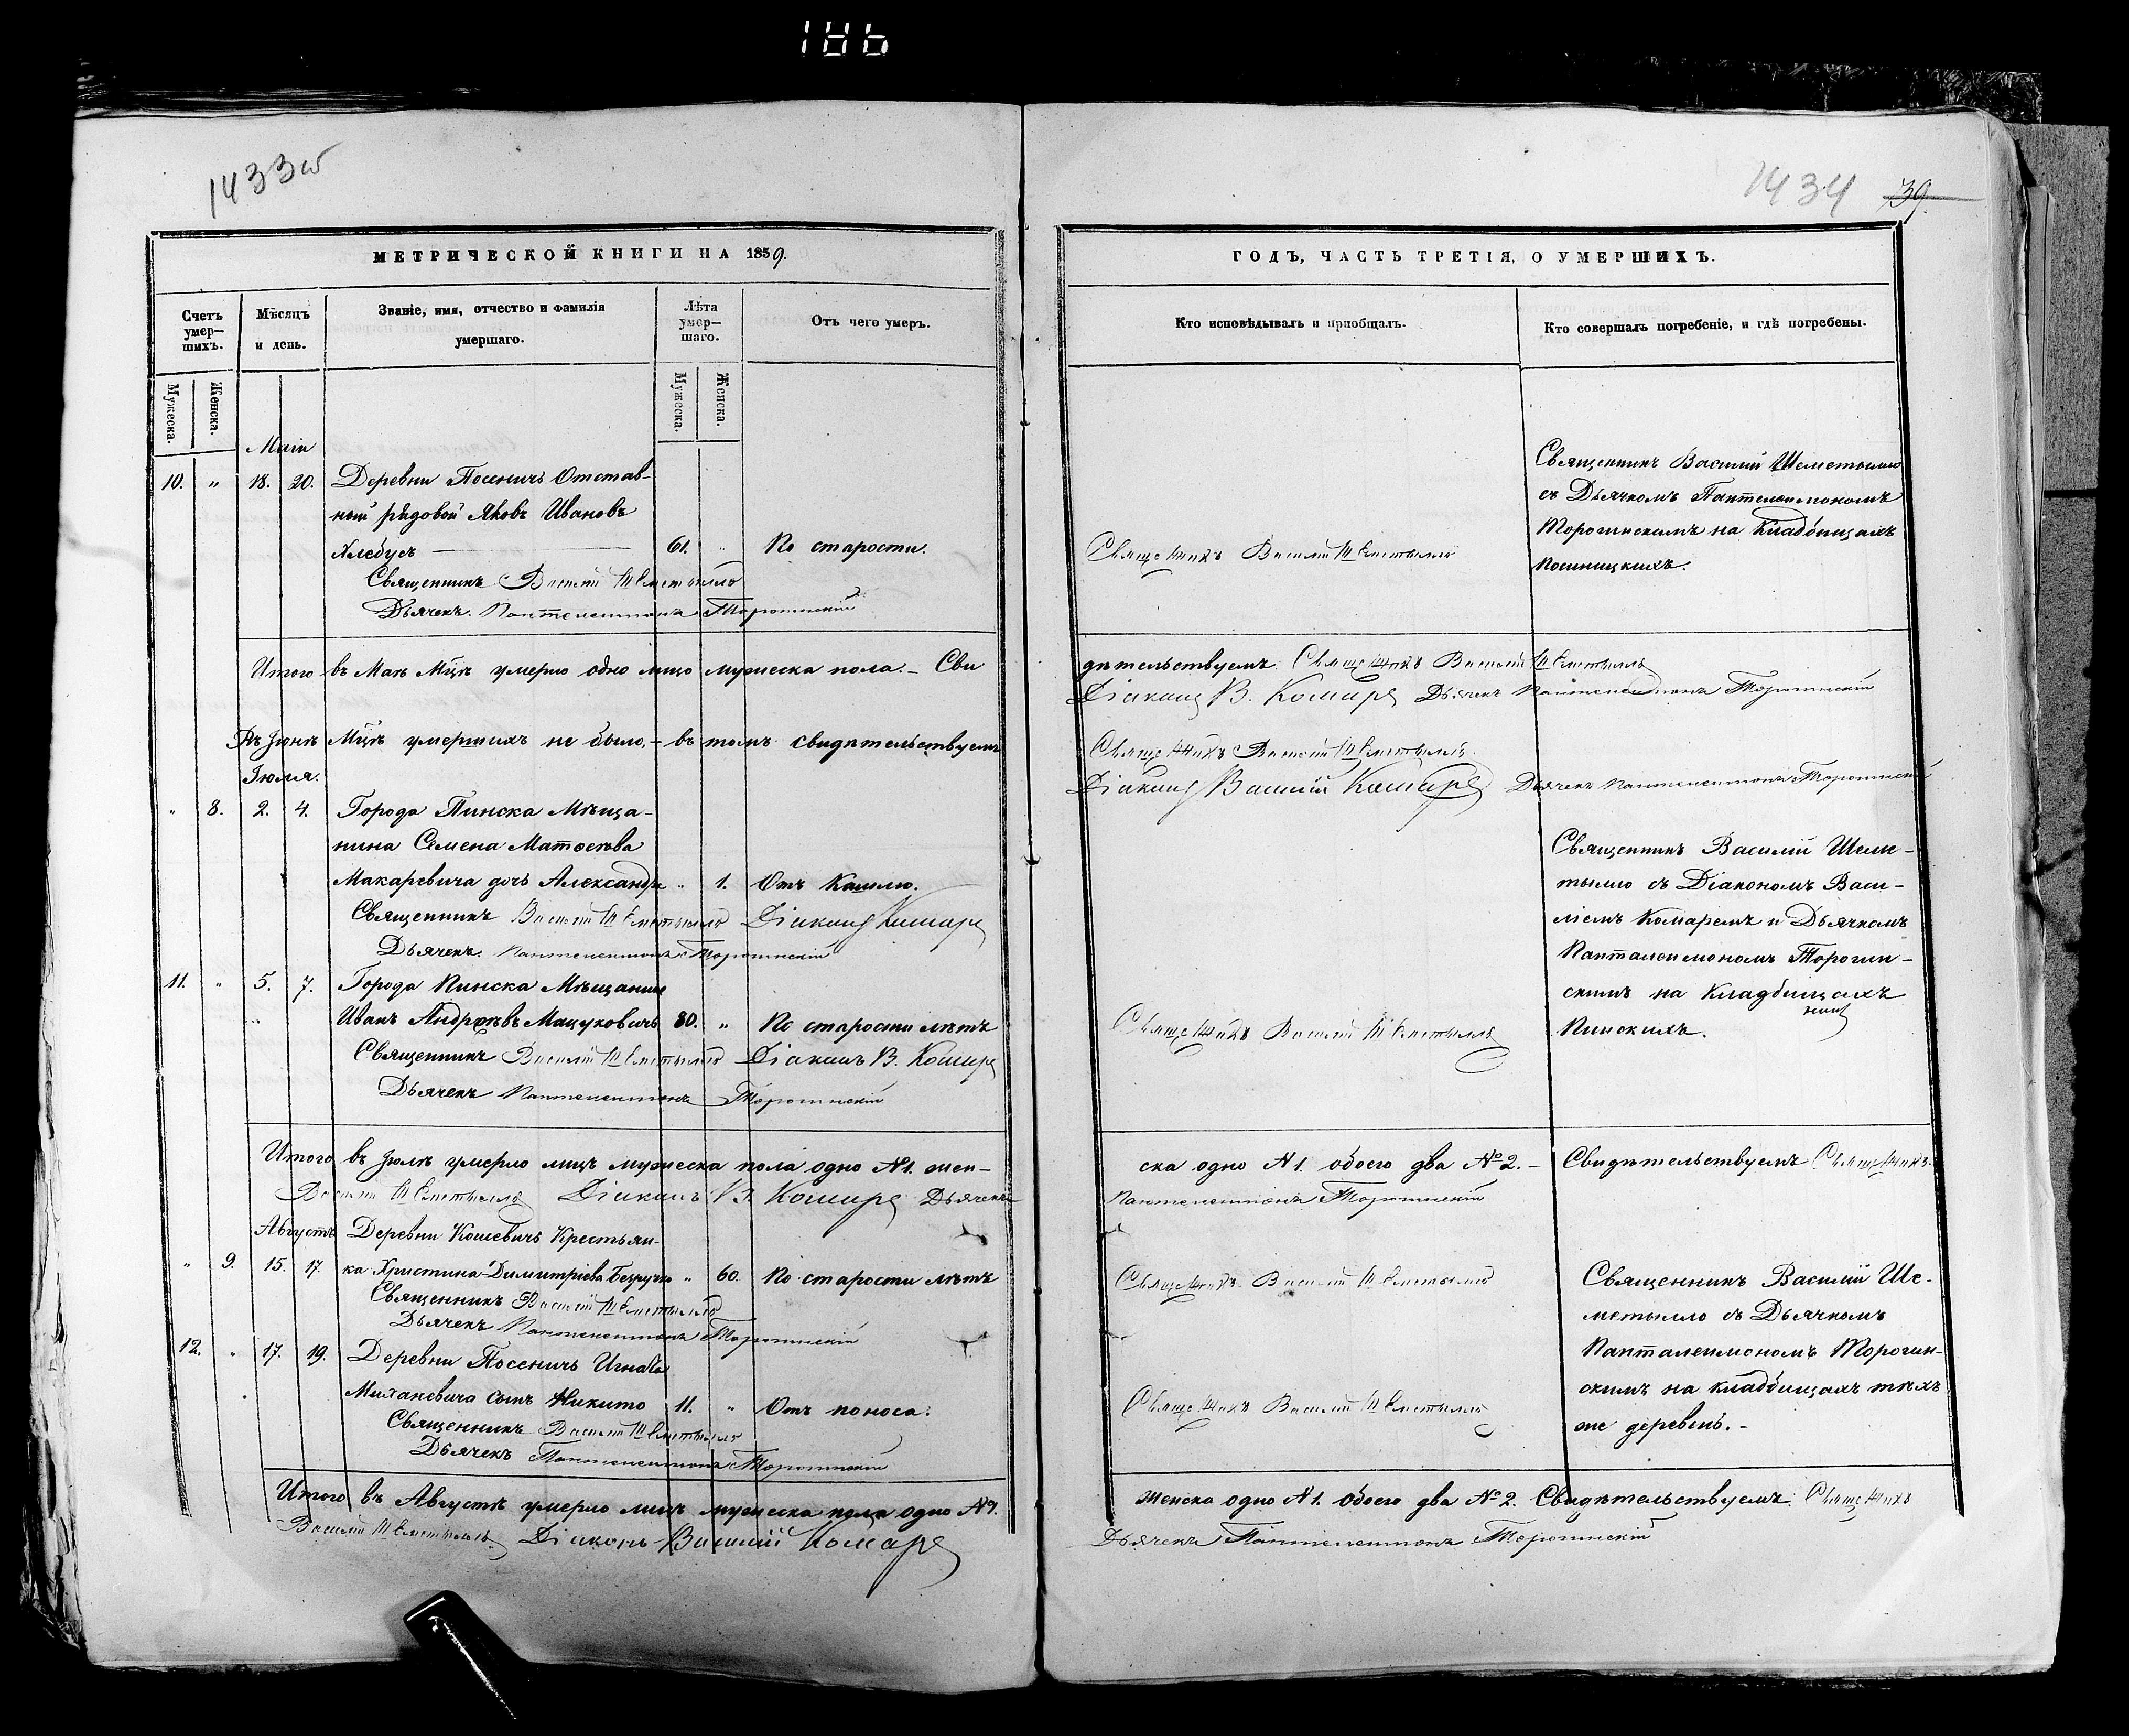 186
1433об
МЕТРИЧЕСКОЙ КНИГИ НА 1859.
Счетъ умер—шихъ.
Мѣсяцъ и день.
Званіе, имя, отчество и фамилія умершаго.
Лѣта умер—шаго.
Отъ чего умеръ.
Мужеска.
Женска.
Мужеска.
Женска.
Маія
10. " 18. 20. Деревни Посеничъ Отстав-
ный рядовой Яковъ Ивановъ
Хлебусъ 61. " По старости.
Священникъ Василій Шеметылло
Дьячекъ Пантелеимонъ Торогинскій
Итого въ Маѣ Мцѣ умерло одно лицо мужеска пола. — Сви
Въ Іюнѣ Мцѣ умершихъ не было, — въ томъ свидѣтельствуемъ
Іюля.
" 8. 2. 4. Города Пинска Мѣща-
нина Семена Матѳеева
Макаревича дочь Александра " 1. Отъ Кашлю.
Священникъ Василій Шеметылло Діаконъ Комаръ
Дьячекъ Пантелеимонъ Торогинскій
11. " 5. 7. Города Пинска Мѣщанинъ
Иванъ Андреевъ Мацуковичъ 80. " По старости лѣтъ
Священникъ Василій Шеметылло Діаконъ В. Комаръ
Дьячекъ Пантелеимонъ Торогинскій
Итого въ Іюлѣ умерло лицъ мужеска пола одно №1. жен-
Василій Шеметылло Діаконъ В. Комаръ Дьячекъ
Августъ Деревни Кошевичъ Крестьян-
" 9. 15. 17. ка Христина Димитріева Безручко " 60. По старости лѣтъ
Священникъ Василій Шеметылло
Дьячекъ Пантелеимонъ Торогинскій
12. " 17. 19. Деревни Посеничъ Игната
Миханевича сынъ Никито 11. " Отъ поноса.
Священникъ Василій Шеметылло
Дьячекъ Пантелеимонъ Торогинскій
Итого въ Августѣ умерло лицъ мужеска пола одно №1.
Василій Шеметылло Діаконъ Василій Комаръ
1434 39.
ГОДЪ, ЧАСТЬ ТРЕТІЯ, О УМЕРШИХЪ.
Кто исповѣдывалъ и пріобщалъ.
Кто совершалъ погребеніе, и гдѣ погребены.
Священникъ Василій Шеметылло
съ Дьячкомъ Пантелеимономъ
Торогинскимъ на Кладбищахъ
Священникъ Василій Шеметылло
Посиницкихъ.
дѣтельствуемъ Священникъ Василій Шеметылло
Діаконъ В. Комаръ Дьячекъ Пантелеимонъ Торогинскій
Священникъ Василій Шеметылло
Діаконъ Василій Комаръ Дьячекъ Пантелеимонъ Торогинскій
Священникъ Василій Шеме-
тылло съ Діакономъ Васи-
ліемъ Комаремъ и Дьячкомъ
Панталеимономъ Торогин-
скимъ на Кладбищахъ
Священникъ Василій Шеметылло
Пинскихъ.
ска одно №1. обоего два №2. — Свидѣтельствуемъ Священникъ
Пантелеимонъ Торогинскій
Священникъ Василій Шеметылло
Священникъ Василій Ше-
метылло съ Дьячкомъ
Панталеимономъ Торогин-
скимъ на кладбищахъ тѣхъ
Священникъ Василій Шеметылло
же деревень. —
женска одно №1. Обоего два №2. Свидѣтельствуемъ Священникъ
Дьячекъ Пантелеимонъ Торогинскій